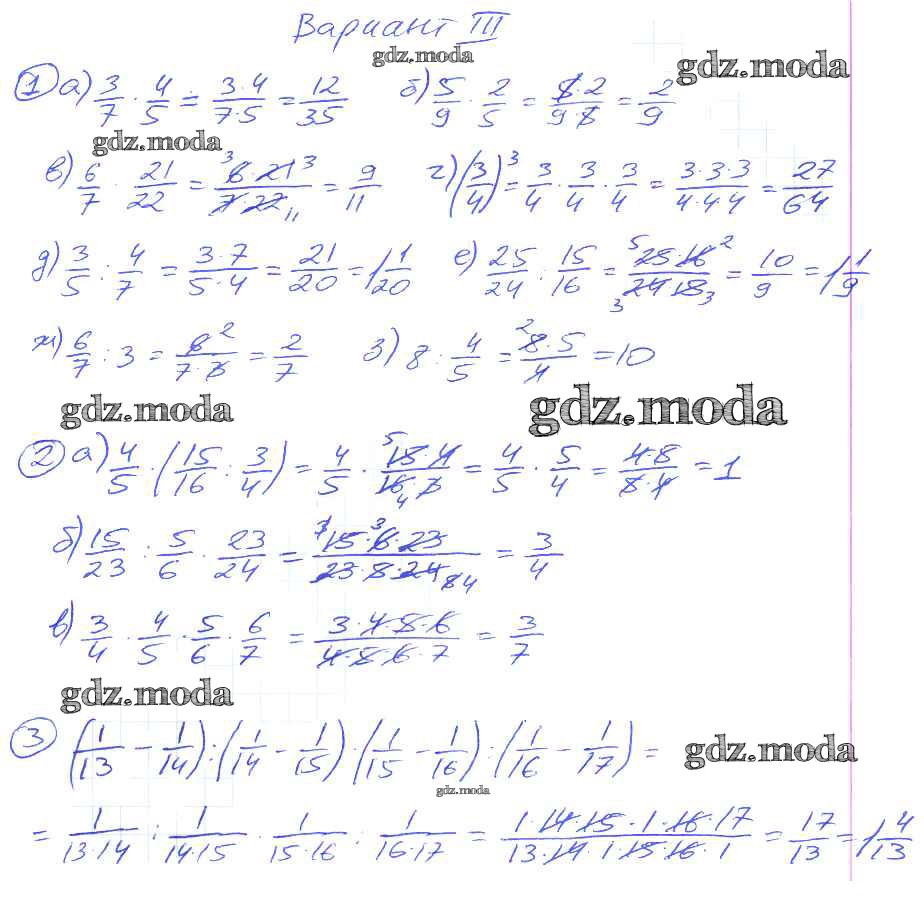 Вариант III
gdz.moda
gdz.moda
① а) 3/7 · 4/5 = 3·4/7·5 = 12/35 б) 5/9 · 2/5 = 5·2/9·5 = 2/9
gdz.moda
в) 6/7 · 21/22 = ³6·21³/7·22₁₁ = 9/11 г) (3/4)³ = 3/4 · 3/4 · 3/4 = 3·3·3/4·4·4 = 27/64
д) 3/5 : 4/7 = 3·7/5·4 = 21/20 = 1 1/20 е) 25/24 : 15/16 = ⁵25·16²/₃24·15₃ = 10/9 = 1 1/9
ж) 6/7 : 3 = 6²/7·3 = 2/7 з) 8 : 4/5 = ²8·5/4 = 10
gdz.moda
gdz.moda
② а) 4/5 · (15/16 : 3/4) = 4/5 · ⁵15·4/16₄·3 = 4/5 · 5/4 = 4·5/5·4 = 1
б) 15/23 : 5/6 · 23/24 = ³15·6³·23/23·5·24₈₄ = 3/4
в) 3/4 · 4/5 · 5/6 · 6/7 = 3·4·5·6/4·5·6·7 = 3/7
gdz.moda
③ (1/13 − 1/14) : (1/14 − 1/15) · (1/15 − 1/16) : (1/16 − 1/17) =
gdz.moda
gdz.moda
= 1/13·14 : 1/14·15 · 1/15·16 : 1/16·17 = 1·14·15·1·16·17/13·14·1·15·16·1 = 17/13 = 1 4/13